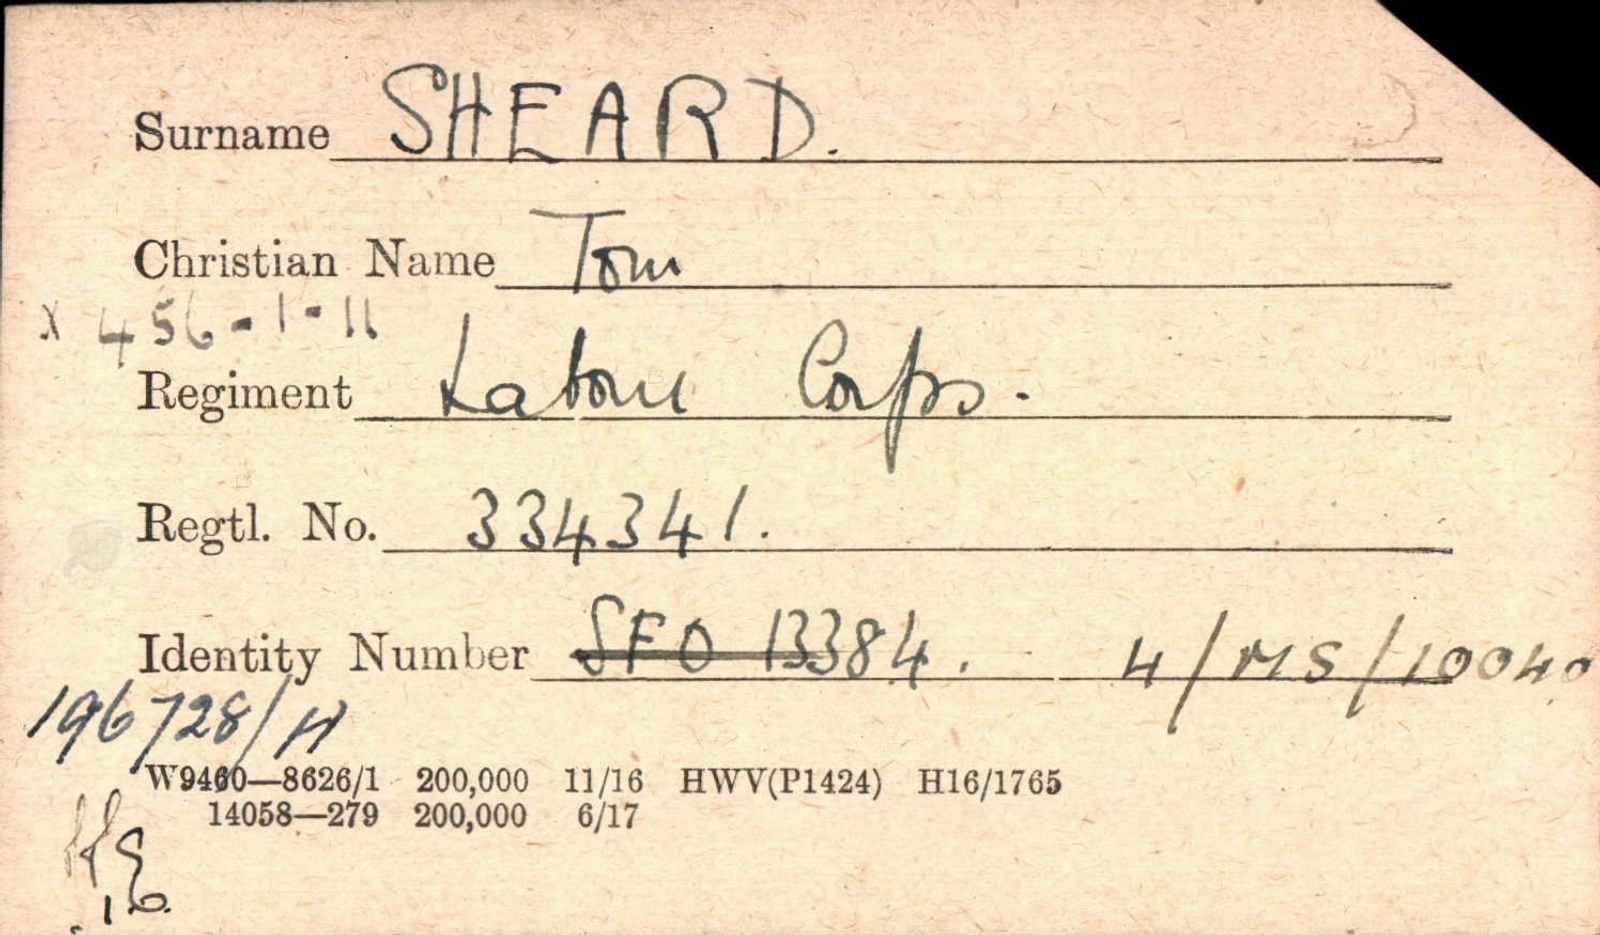 Surname SHEARD.
Christian Name Tom
x 456-1-11
Regiment Labour Corps.
Regtl. No. 334341.
Identity Number SFO 13384. 4/MS/10040
196728/H
W9460—8626/1 200,000 11/16 HWV(P1424) H16/1765
14058—279 200,000 6/17